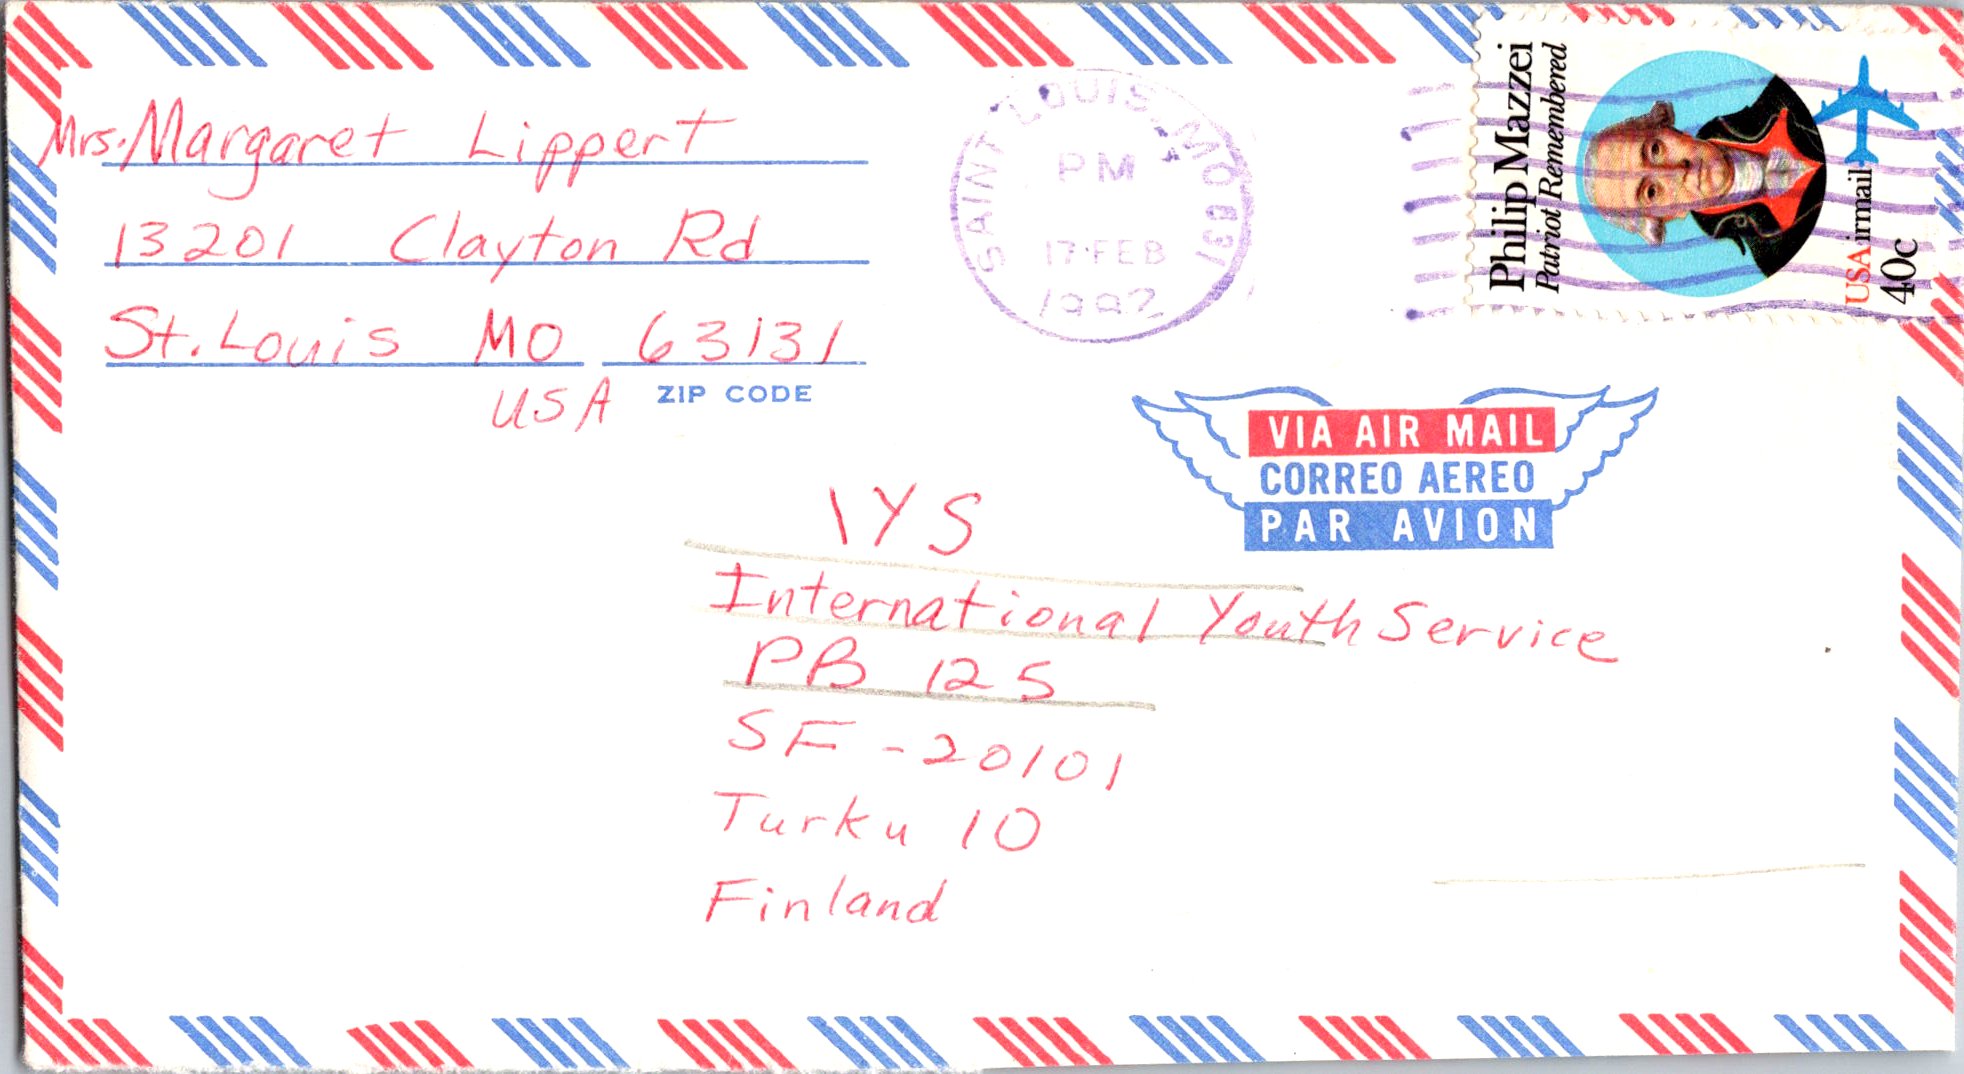 Mrs. Margaret Lippert
13201 Clayton Rd
St. Louis MO 63131
USA ZIP CODE
SAINT LOUIS, MO 631
PM
17 FEB
1992
Philip Mazzei
Patriot Remembered
USAirmail
40c
VIA AIR MAIL
CORREO AEREO
PAR AVION
IYS
International Youth Service
PB 125
SF-20101
Turku 10
Finland